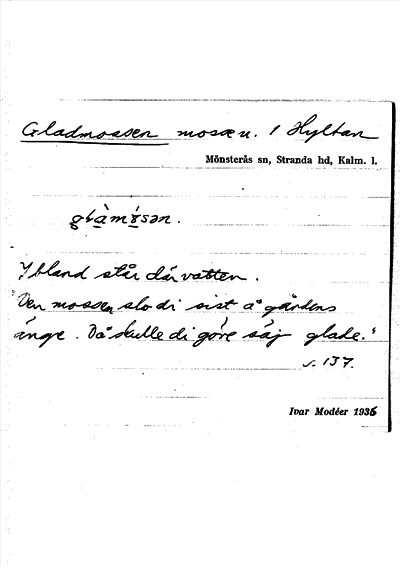 Gladmossen mossen. 1 Hyltan
Mönsterås sn, Stranda hd, Kalm. l.
Ibland står där vatten.
"Den mossen slo di sist å gårdens
änge. Då skulle di göre säj glade."
s. 137.
Ivar Modéer 1936